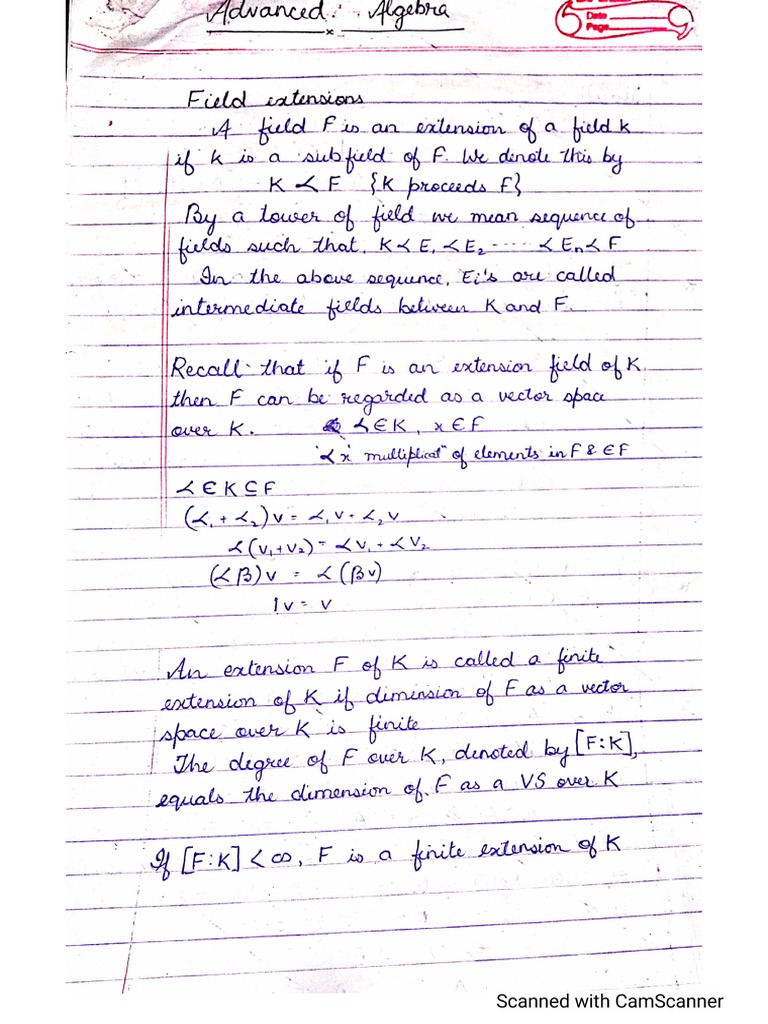 Advanced Algebra
Date
Page
Field extensions
A field F is an extension of a field K
if K is a subfield of F. We denote this by
K ≺ F {K proceeds F}
By a tower of field we mean sequence of
fields such that, K≺E₁≺E₂ ..... ≺Eₙ≺F
In the above sequence, Ei's are called
intermediate fields between K and F.
Recall that if F is an extension field of K
then F can be regarded as a vector space
over K. α∈K, x∈F
'αx' multiplicatⁿ of elements in F & ∈F
α∈K⊆F
(α₁+α₂)v = α₁v+α₂v
α(v₁+v₂) = αv₁+αv₂
(αβ)v = α(βv)
1v = v
An extension F of K is called a finite
extension of K if dimension of F as a vector
space over K is finite
The degree of F over K, denoted by [F:K],
equals the dimension of F as a VS over K
If [F:K] < ∞, F is a finite extension of K
Scanned with CamScanner